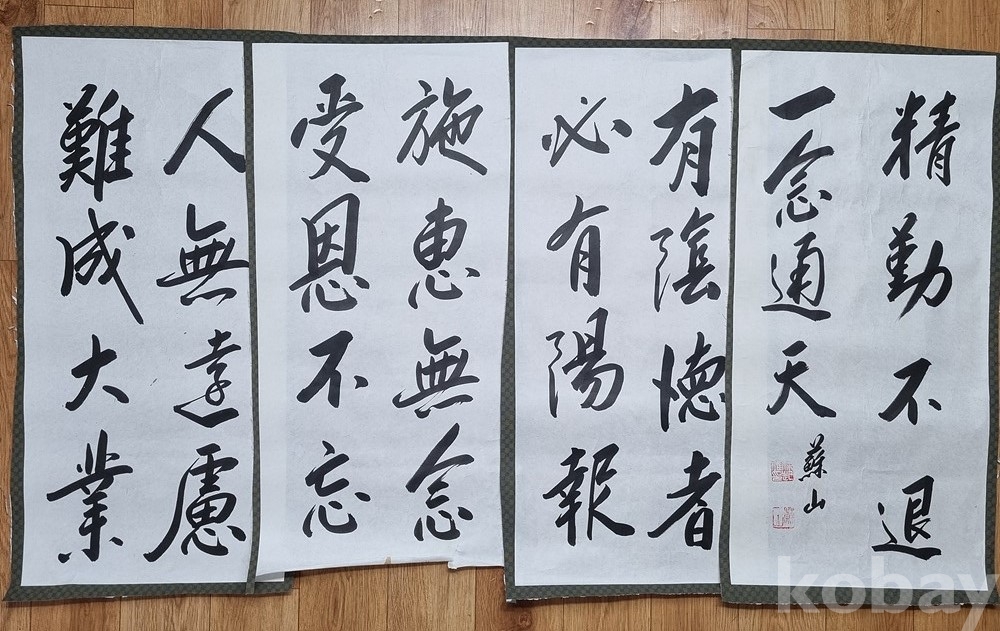 精勤不退
一念通天
蘇山
有陰德者
必有陽報
施惠無念
受恩不忘
人無遠慮
難成大業
kobay